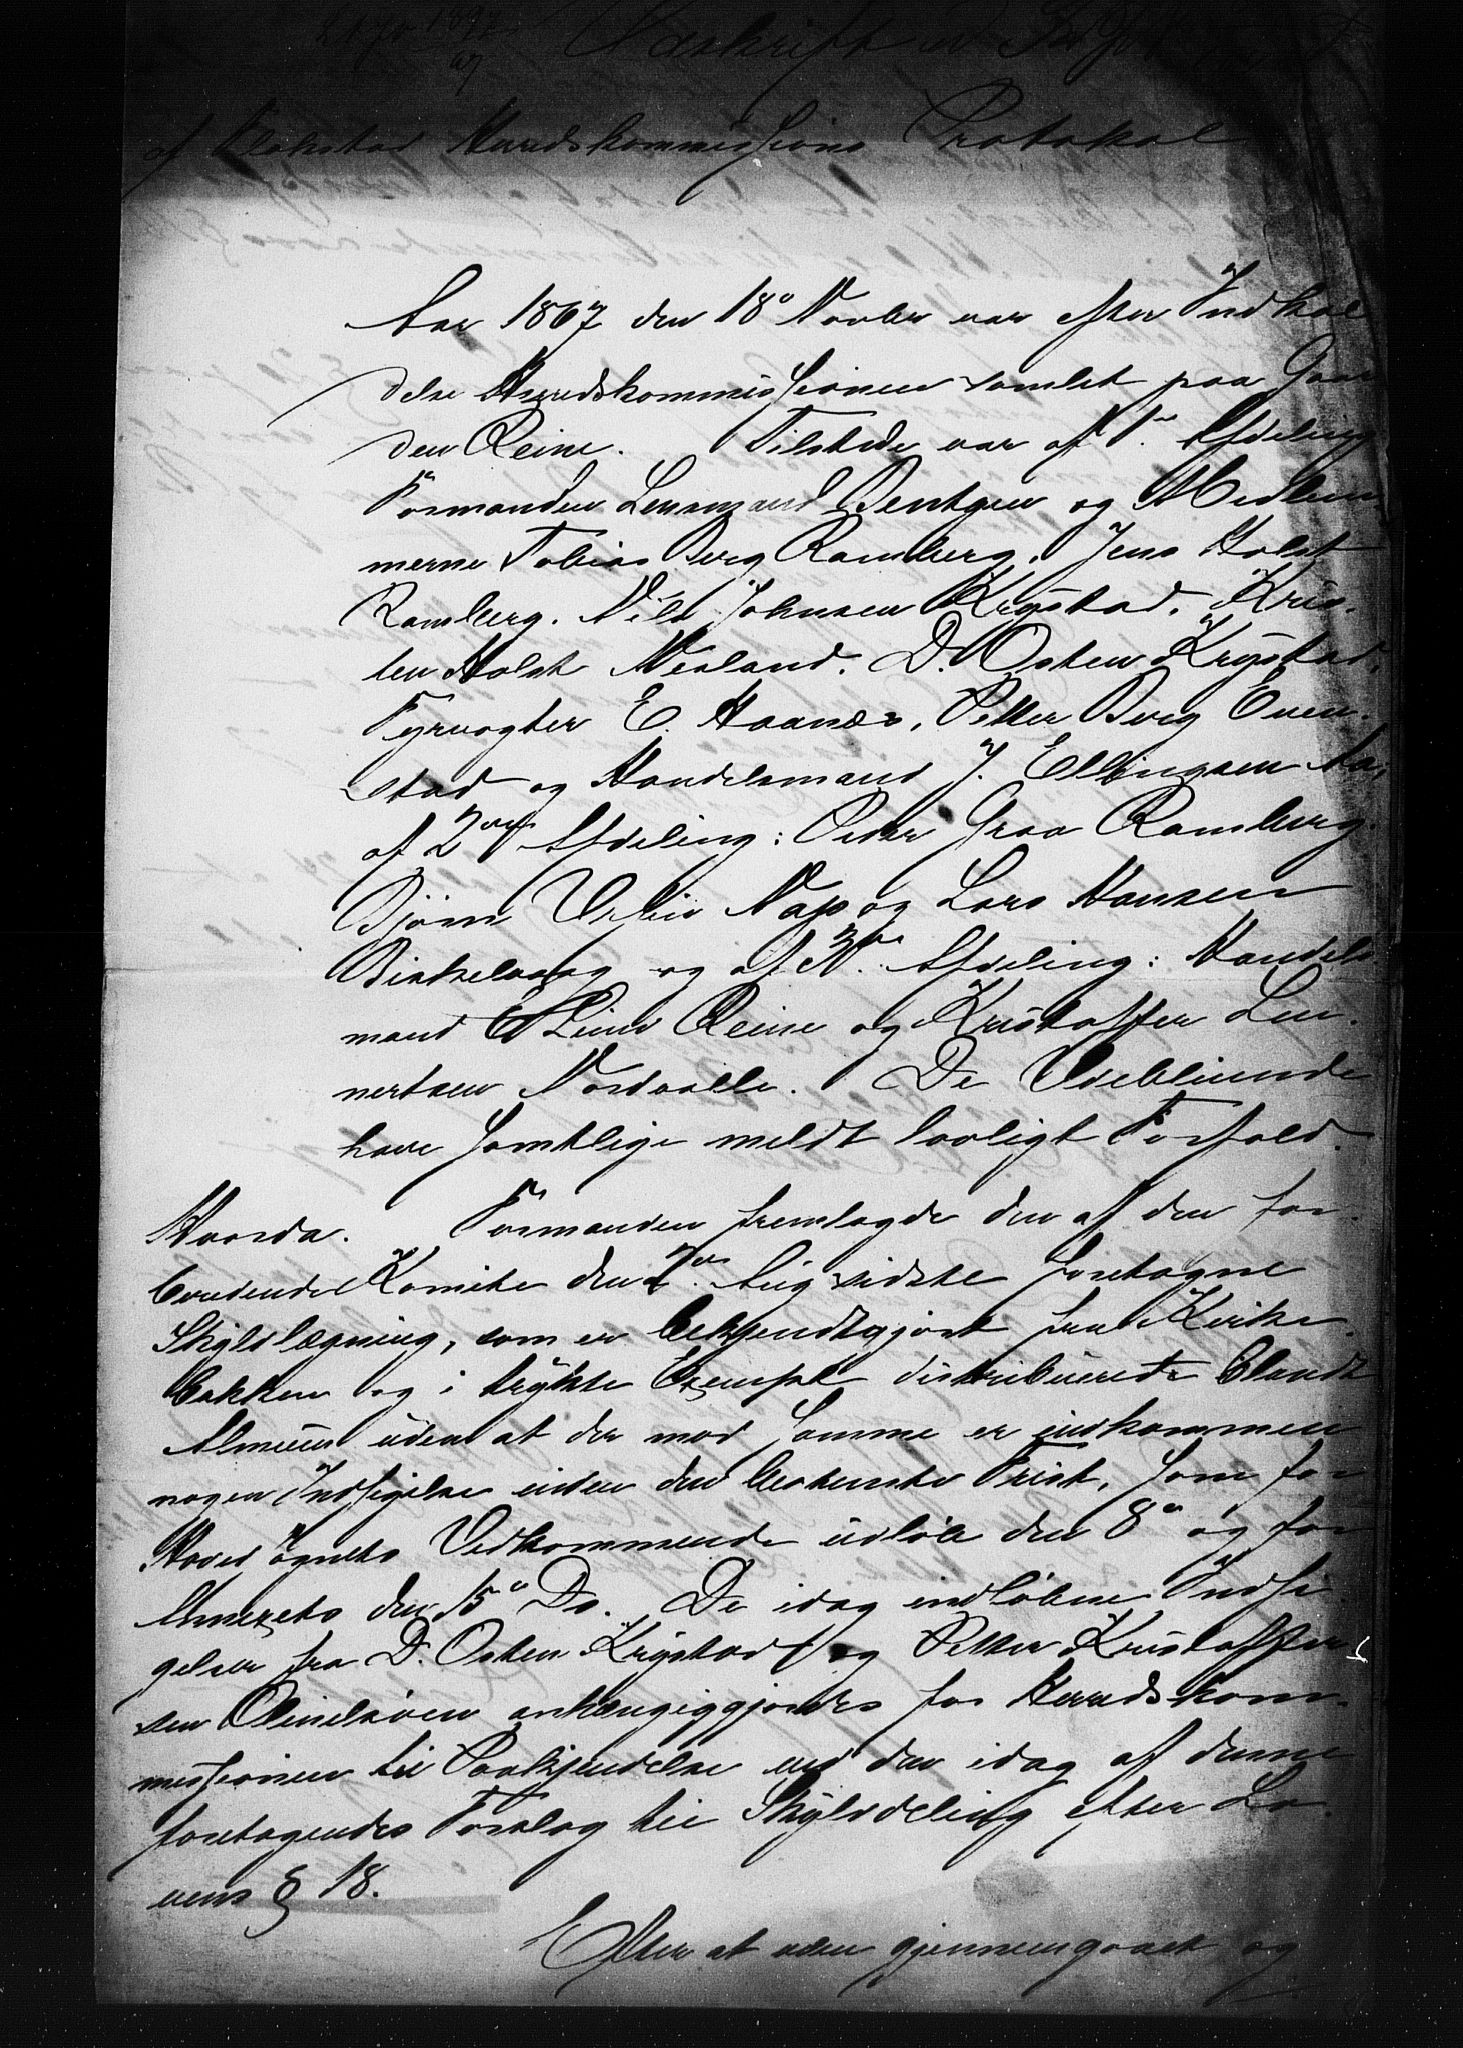 1897
Udskrift
af Flakstad Herredskommissions Protokol
Aar 1867 den 18º Novbr var efter Indkal
delse Herredskommissionen samlet paa Gaar
den Reine. Tilstede var af 1ste Afdeling
Formanden Lensmand Bentzen og Medlem
merne Tobias Berg Ramberg, Jens Holst
Ramberg. Nils Johnsen Krystad. Kris-
ten Holst Nesland. D. Osten Krystad,
Fyrvogter E. Haanæs, Petter Berg Even-
stad og Handelsmand J. Ellingsen Aa,
af 2den Afdeling: Peder Graa Ramberg
Bjørn Nap og Lars Hansen
Birkelvaag og af 3die Afdeling: Handels
mand Reine og Kristoffer Len-
nertsen Nordvalle. De Udeblivende
have samtlige meldt lovligt Forfald.
Hvorda. Formanden fremlagde den af den for
beredende Komite den 7de Aug sidste foretagne
Skyldlægning, som er bekjendtgjort fra Kirke
bakken og i trykte Exempl distribuerede blandt
Almuen uden at der mod samme er indkommen
nogen Indsigelse inden den bestemte Frist, som for
Hovedsognets Vedkommende udløb den 8º og for
Annexets den 15º Ds. De idag indløbne Indsi
gelser fra D. Osten Krystad og Petter Kristoffer
sen anhængiggjordes for Herredskom-
missionen til Paakjendelse ved det idag af denne
foretagendes Forslag til Skylddeling efter Lo
vens § 18.
Efter at være gjennemgaaet og